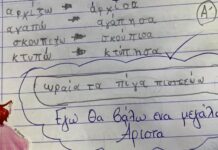 αρχίζω → άρχισα
αγαπώ → αγάπησα
σκουπίζω → σκούπισα
κτυπώ → κτύπησα
Α+
ωραία τα πίγα πιστεύω
Εγώ θα βάλω ένα μεγάλο
Άριστα